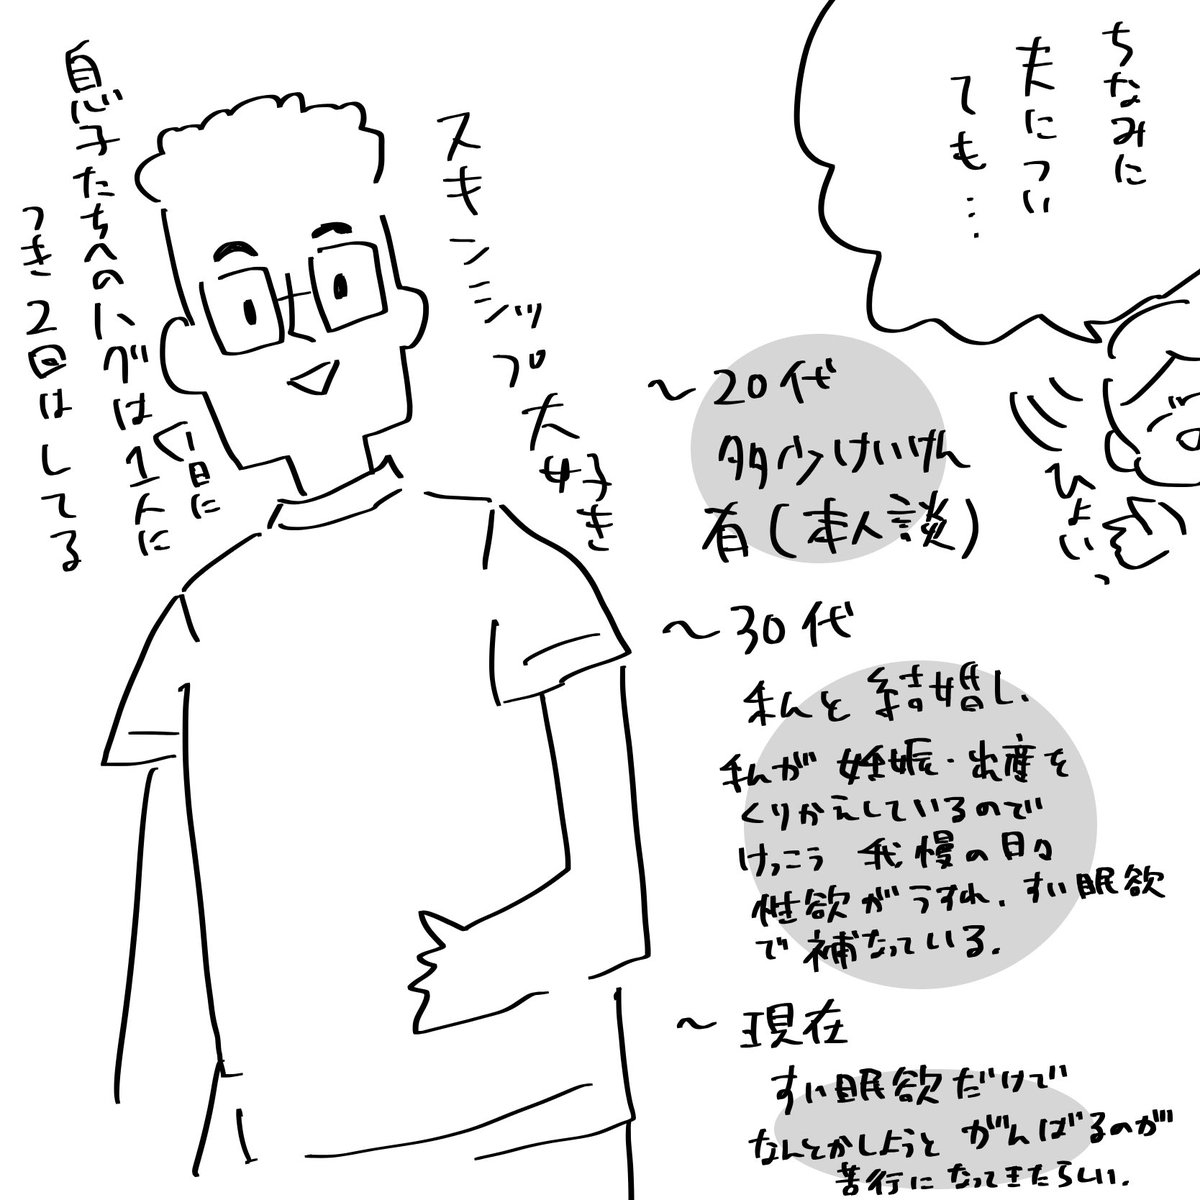 ちなみに
夫につい
ても…
ひょいっ
スキンシップ大好き
息子たちへのハグは1人に
つき2回はしてる
1日に
〜20代
タタゥけいけん
有(本人談)
〜30代
私と結婚し、
私が妊娠・出産を
くりかえしているので
けっこう我慢の日々
性欲がうすれ、すい眠欲
で補なっている。
〜現在
すい眠欲だけで
なんとかしようとがんばるのが
苦行になってきたらしい。